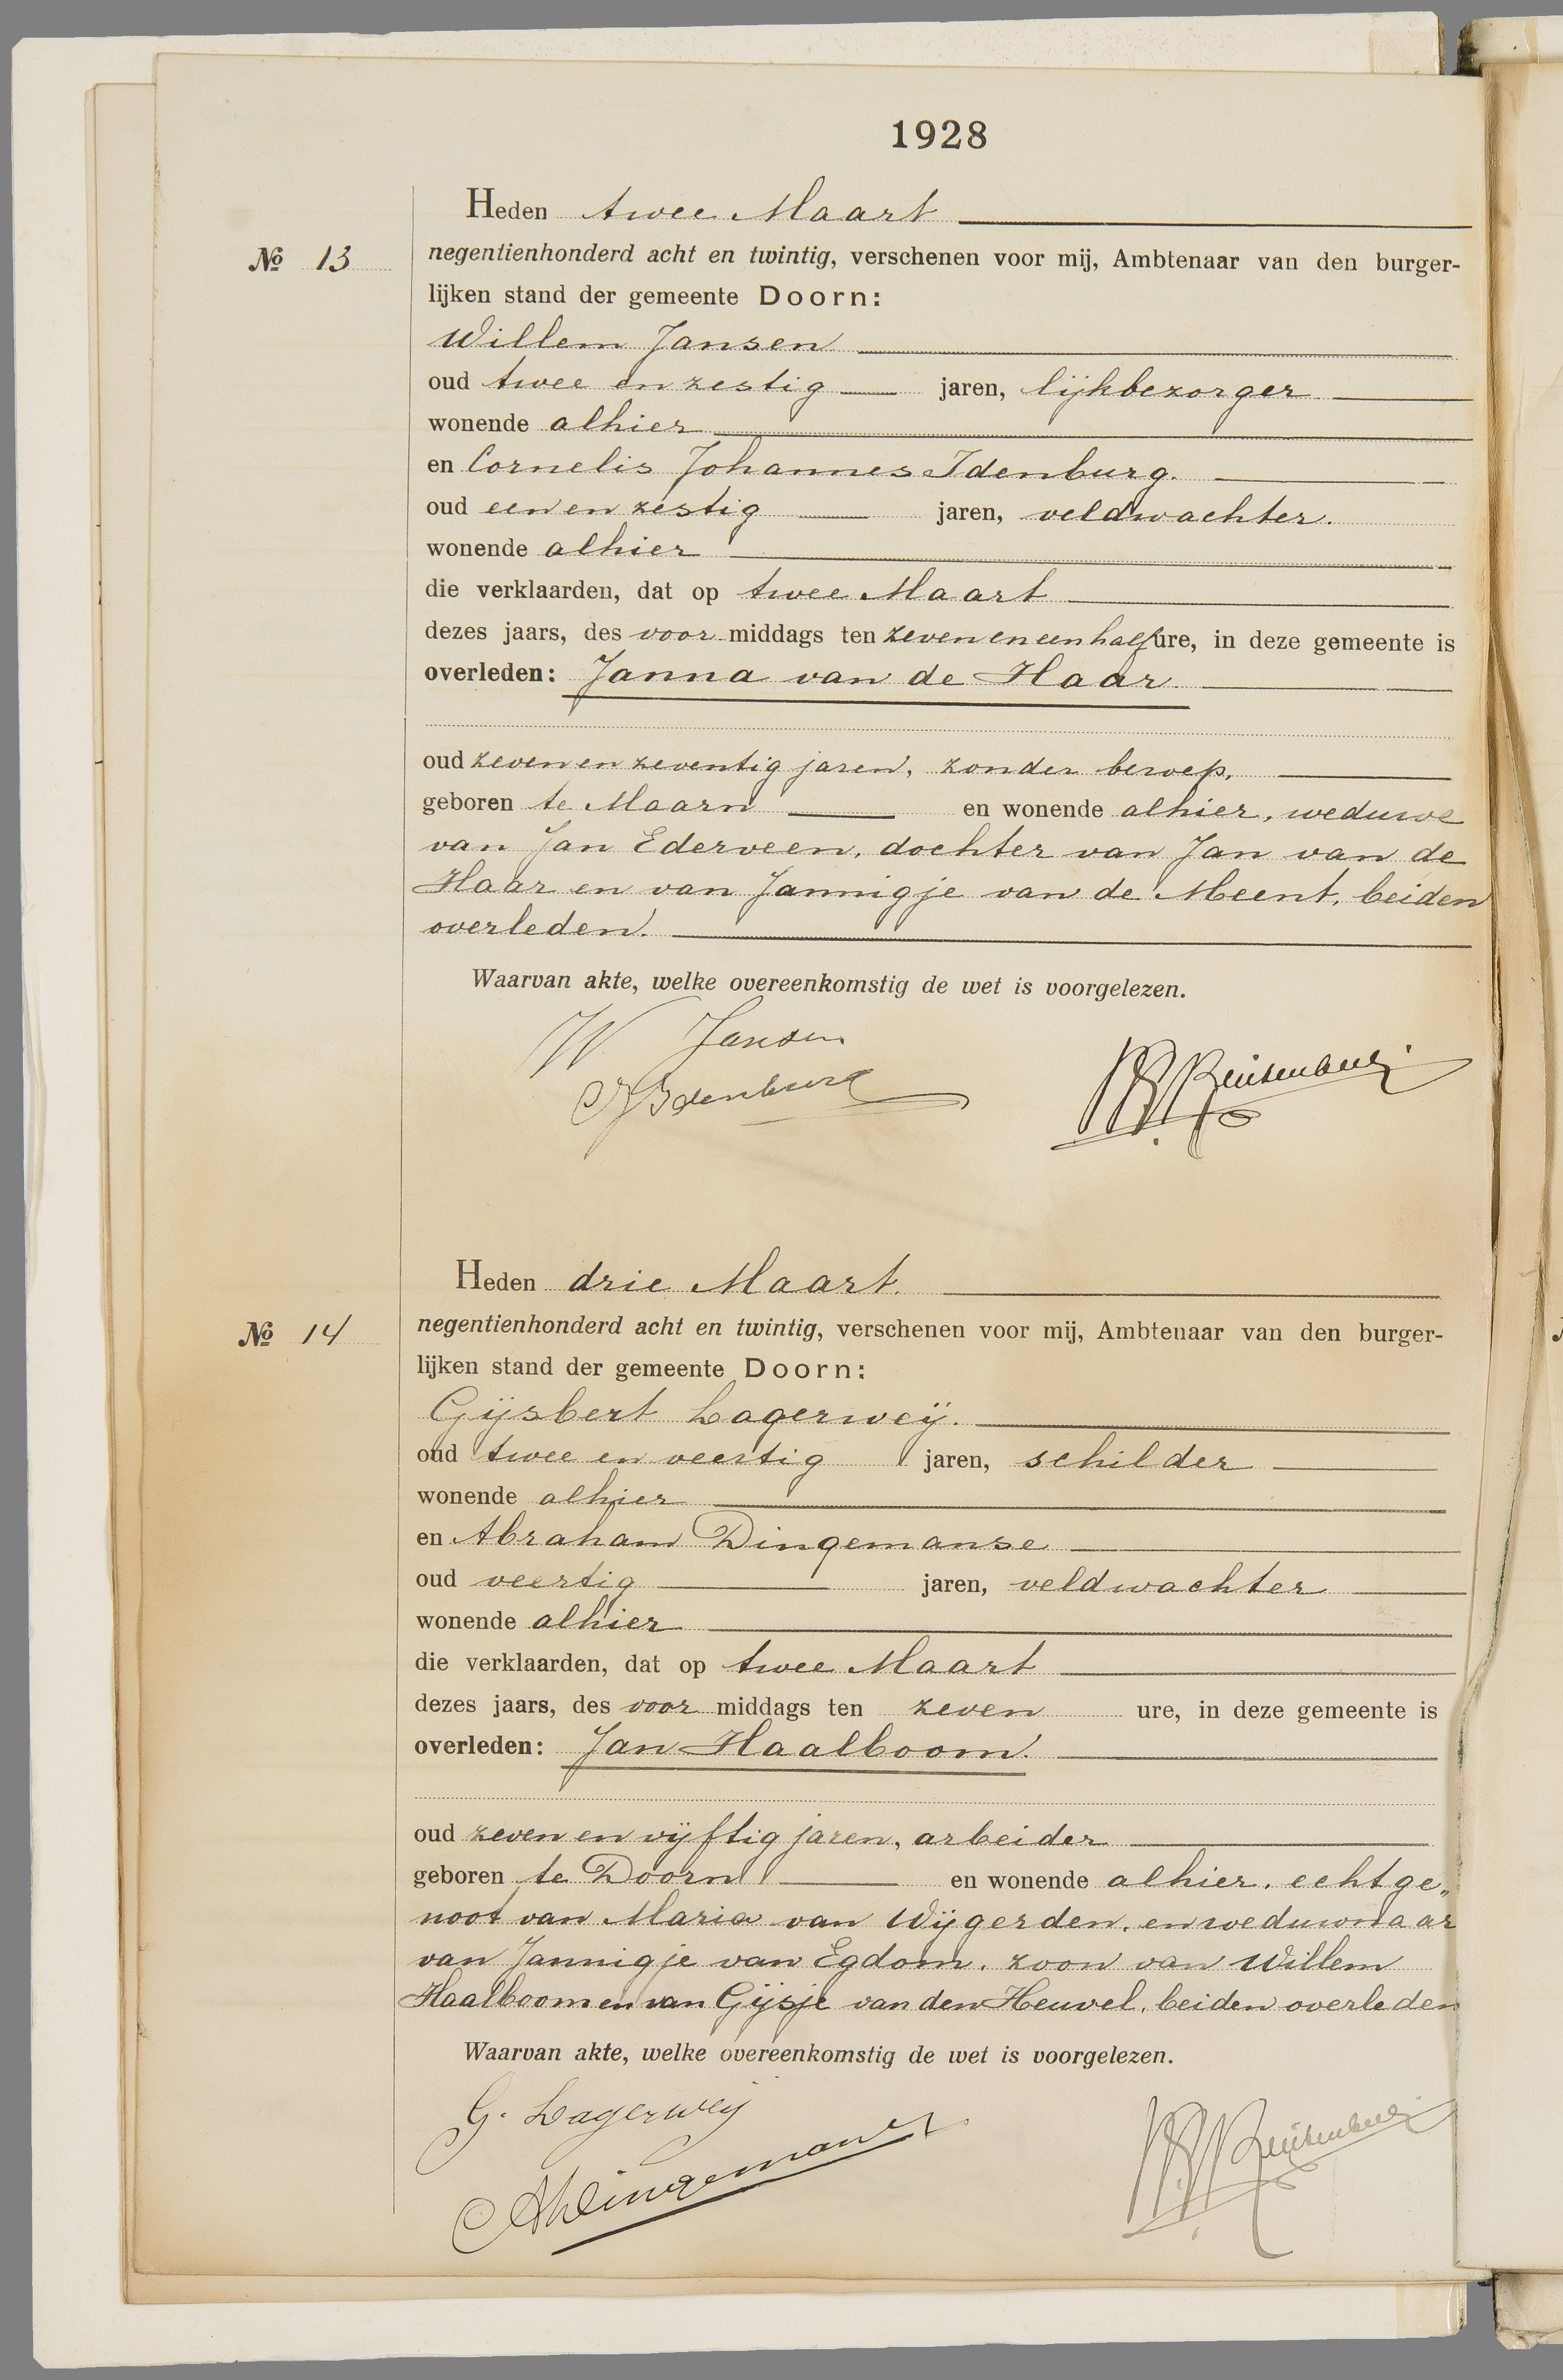 1928
Heden twee Maart
No 13
negentienhonderd acht en twintig, verschenen voor mij, Ambtenaar van den burger-
lijken stand der gemeente Doorn:
Willem Jansen
oud twee en zestig jaren, lijkbezorger
wonende alhier
en Cornelis Johannes Idenburg.
oud een en zestig jaren, veldwachter.
wonende alhier
die verklaarden, dat op twee Maart
dezes jaars, des voor middags ten zeven en een half ure, in deze gemeente is
overleden: Janna van de Haar
oud zeven en zeventig jaren, zonder beroep,
geboren te Maarn en wonende alhier, weduwe
van Jan Ederveen, dochter van Jan van de
Haar en van Jannigje van de Meent, beiden
overleden.
Waarvan akte, welke overeenkomstig de wet is voorgelezen.
W Jansen
CJ Idenburg
Heden drie Maart.
No 14
negentienhonderd acht en twintig, verschenen voor mij, Ambtenaar van den burger-
lijken stand der gemeente Doorn:
Gijsbert Lagerweij.
oud twee en veertig jaren, schilder
wonende alhier
en Abraham Dingemanse
oud veertig jaren, veldwachter
wonende alhier
die verklaarden, dat op twee Maart
dezes jaars, des voor middags ten zeven ure, in deze gemeente is
overleden: Jan Haalboom.
oud zeven en vijftig jaren, arbeider
geboren te Doorn en wonende alhier, echtge„
noot van Maria van Wijgerden, en weduwnaar
van Jannigje van Egdom, zoon van Willem
Haalboom en van Gijsje van den Heuvel, beiden overleden
Waarvan akte, welke overeenkomstig de wet is voorgelezen.
G. Lagerweij
A Dingemanse